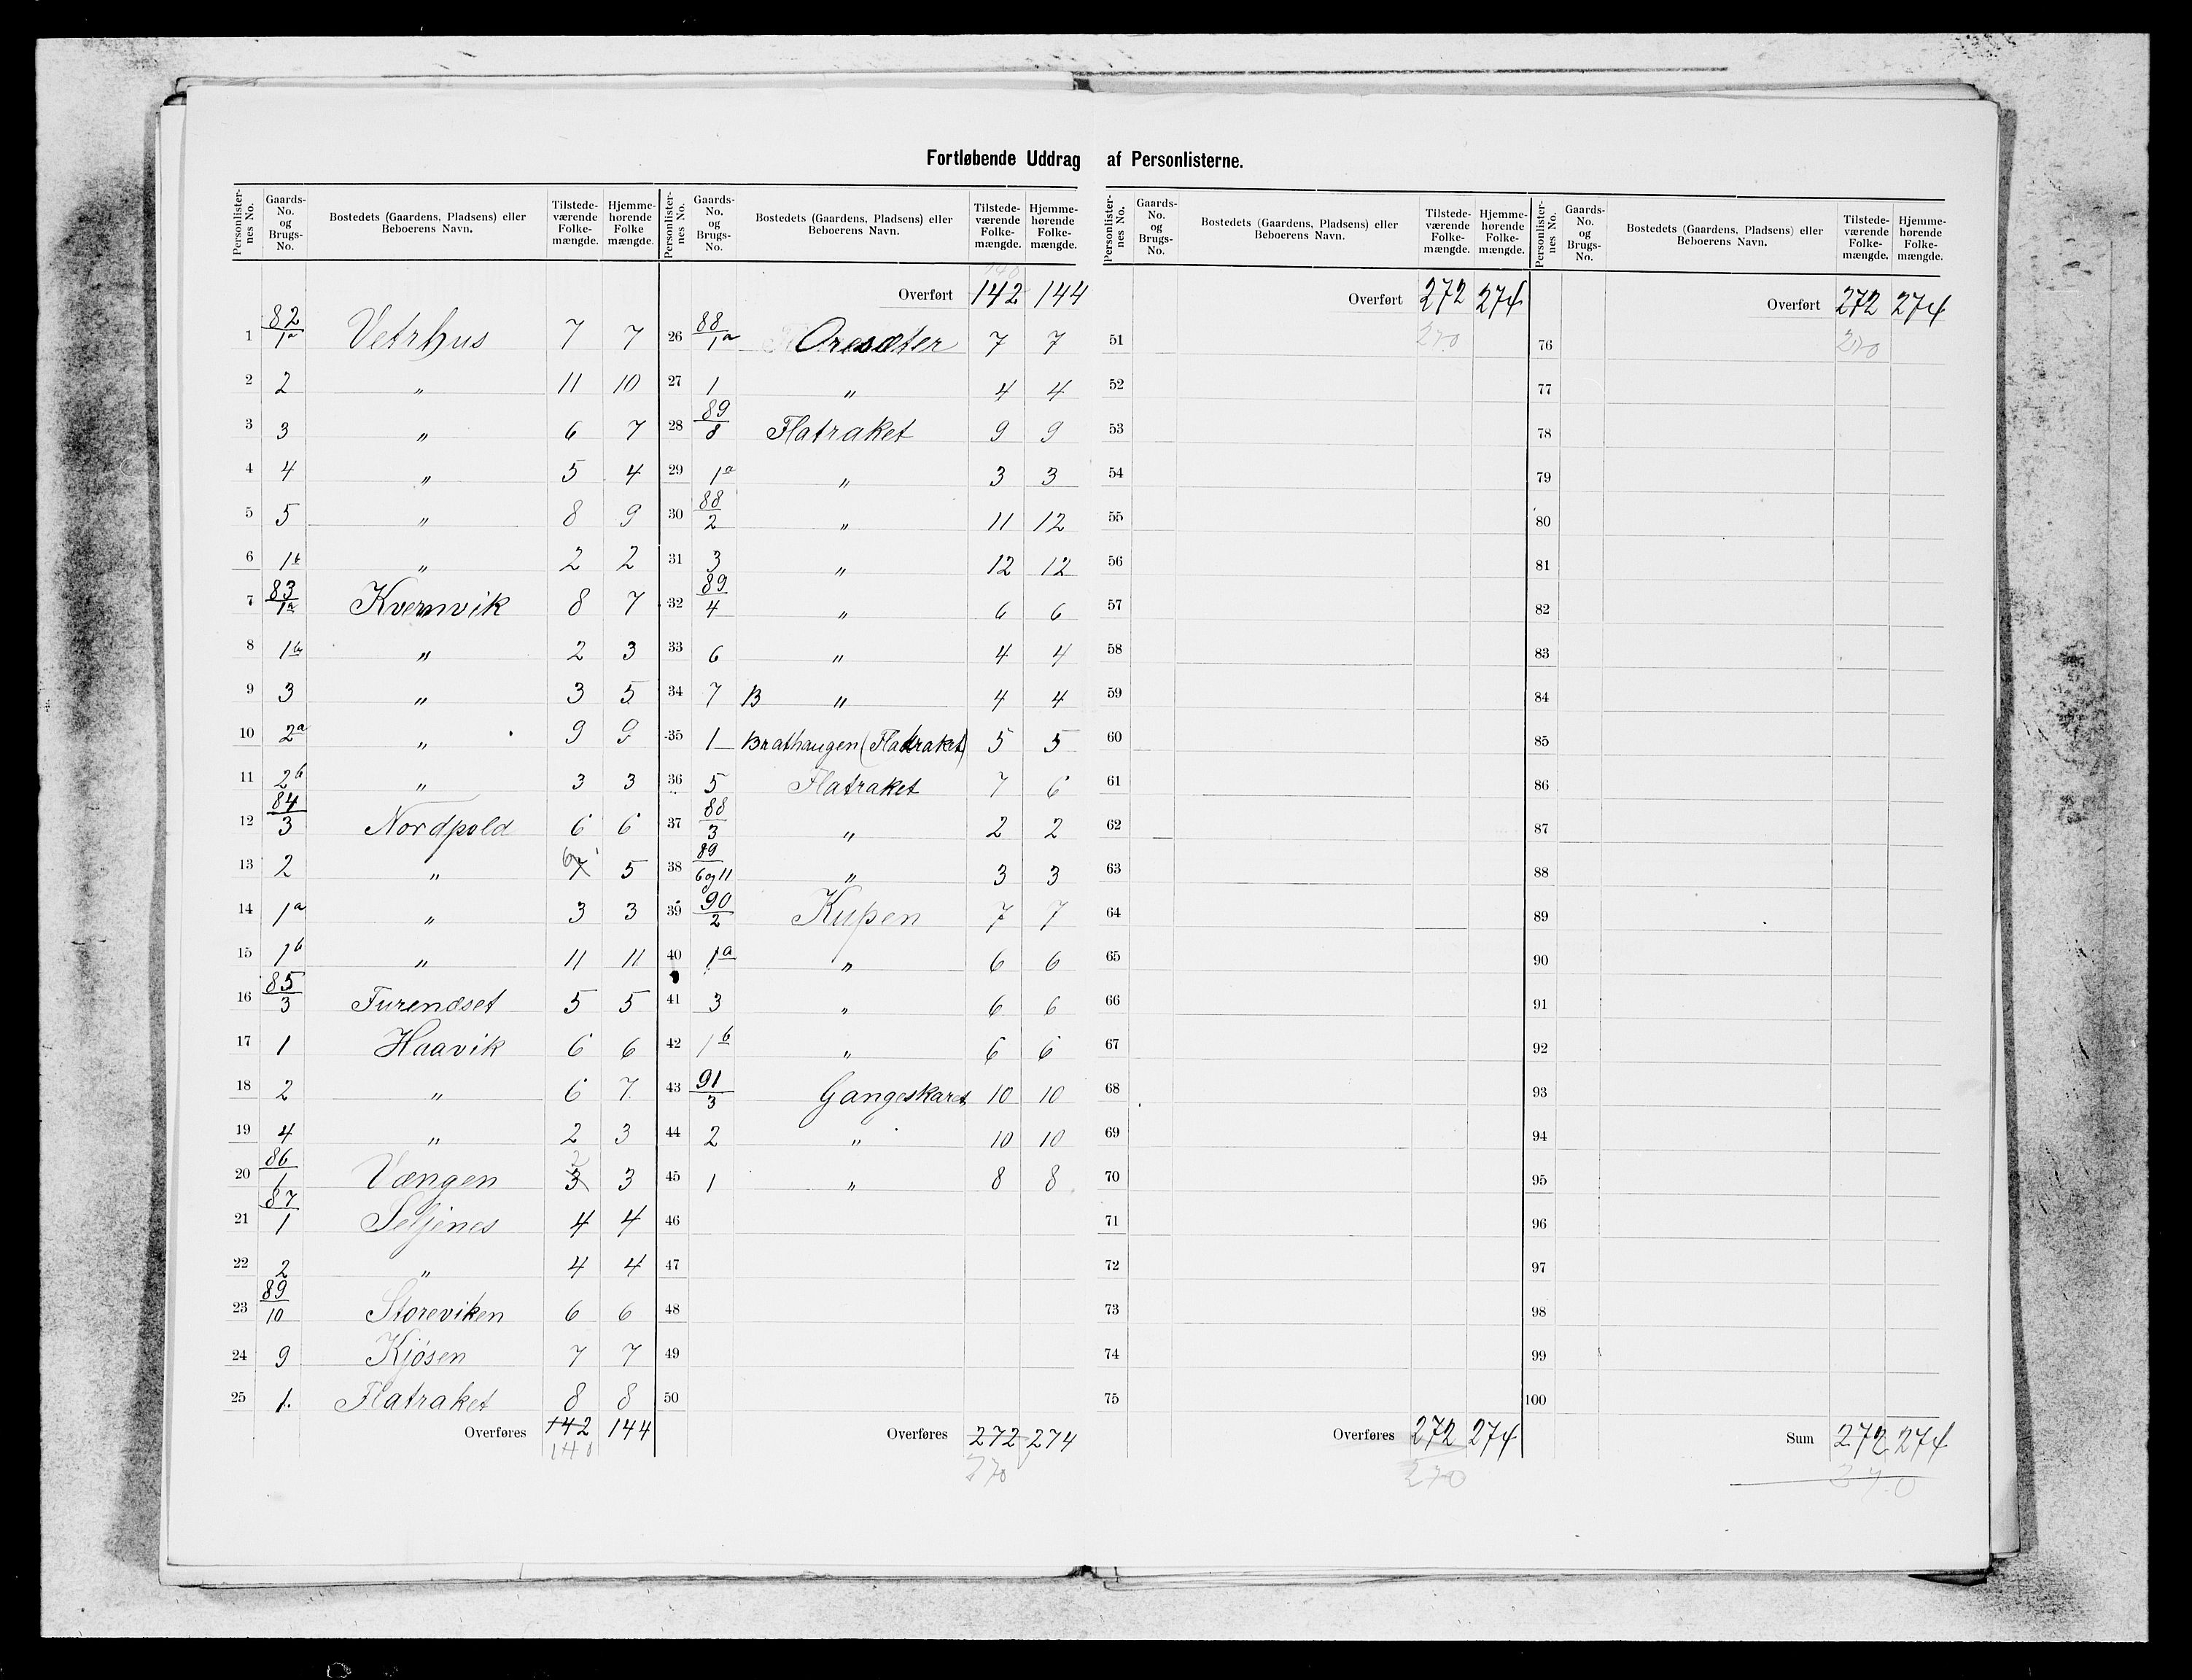 Fortløbende Uddrag af Personlisterne.
Personlister-nes No. | Gaards-No. og Brugs-No. | Bostedets (Gaardens, Pladsens) eller Beboerens Navn. | Tilstede-værende Folke-mængde. | Hjemme-hørende Folke mængde.
1 82/1a Vetrhus 7 7
2 2 „ 11 10
3 3 „ 6 7
4 4 „ 5 4
5 5 „ 8 9
6 1b „ 2 2
7 83/1a Kvernvik 8 7
8 1b „ 2 3
9 3 „ 3 5
10 2a „ 9 9
11 2b „ 3 3
12 84/3 Nordpold 6 6
13 2 „ 6 7 5
14 1a „ 3 3
15 1b „ 11 11
16 85/3 Furenæset 5 5
17 1 Haavik 6 6
18 2 „ 6 7
19 4 „ 2 3
20 86/1 Vængen 2 3 3
21 87/1 Seljenes 4 4
22 2 „ 4 4
23 89/10 Storeviken 6 6
24 9 Kjøsen 7 7
25 1. Flatraket 8 8
Overføres 142 144
140
Personlister-nes No. | Gaards-No. og Brugs-No. | Bostedets (Gaardens, Pladsens) eller Beboerens Navn. | Tilstede-værende Folke-mængde. | Hjemme-hørende Folke-mængde.
140
Overført 142 144
26 88/1a Oresæter 7 7
27 1 „ 4 4
28 89/8 Flatraket 9 9
29 1a „ 3 3
30 88/2 „ 11 12
31 3 „ 12 12
32 89/4 „ 6 6
33 6 „ 4 4
34 7 B „ 4 4
35 1 Brathaugen (Flatraket) 5 5
36 5 Flatraket 7 6
37 88/3 „ 2 2
38 89/6 og 11 „ 3 3
39 90/2 Kupen 7 7
40 1a „ 6 6
41 3 „ 6 6
42 1b „ 6 6
43 91/3 Gangeskaret 10 10
44 2 „ 10 10
45 1 „ 8 8
46
47
48
49
50
Overføres 272 274
270
Personlister-nes No. | Gaards-No. og Brugs-No. | Bostedets (Gaardens, Pladsens) eller Beboerens Navn. | Tilstede-værende Folke-mængde. | Hjemme-hørende Folke-mængde.
Overført 272 274
270
51
52
53
54
55
56
57
58
59
60
61
62
63
64
65
66
67
68
69
70
71
72
73
74
75
Overføres 272 274
270
Personlister-nes No. | Gaards-No. og Brugs-No. | Bostedets (Gaardens, Pladsens) eller Beboerens Navn. | Tilstede-værende Folke-mængde. | Hjemme-hørende Folke-mængde.
Overført 272 274
270
76
77
78
79
80
81
82
83
84
85
86
87
88
89
90
91
92
93
94
95
96
97
98
99
100
Sum 272 274
270